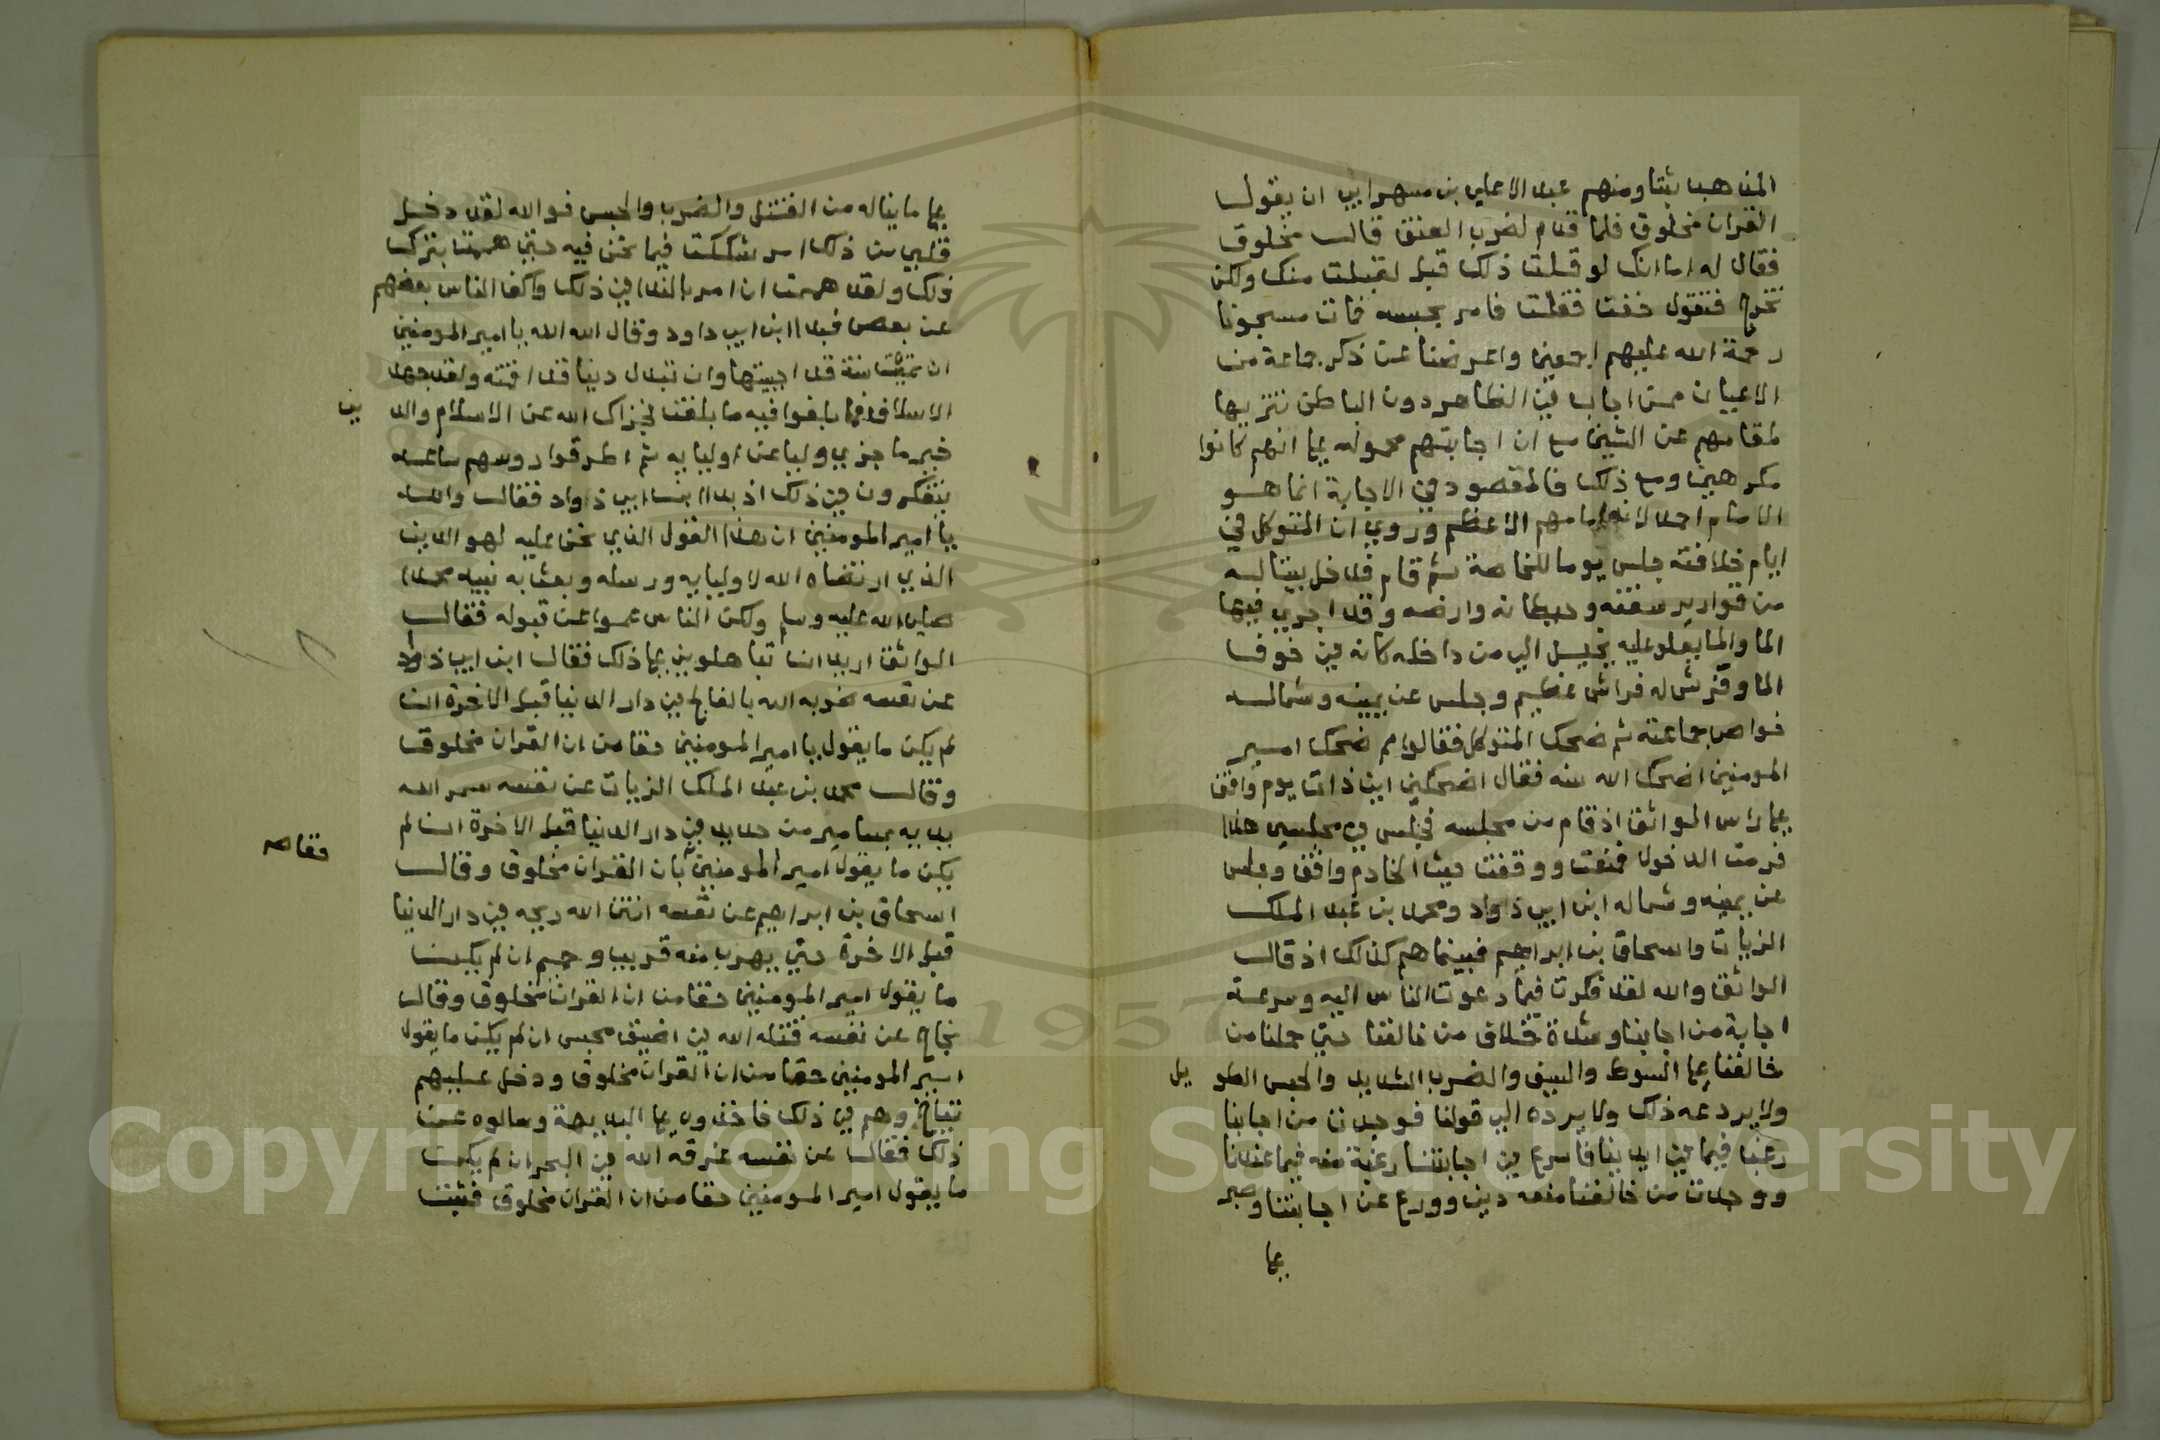 المذهب ثبتا ومنهم عبد الاعلي بن مسهر ابي ان يقول
القران مخلوق فلما قدم لضرب العنق قال مخلوق
فقال له اما انك لو قلت ذلك قبل لقبلت منك ولكن
تخرج فتقول خفت فقلت فامر بحبسه فمات مسجونا
رحمة الله عليهم اجمعين واعرضنا عن ذكر جماعة من
الاعيان ممن اجاب في الظاهر دون الباطن تنزيها
لمقامهم عن الشين مع ان اجابتهم محمولة علي انهم كانوا
مكرهين ومع ذلك فالمقصود في الاجابة انما هو
الامام اجلالا امامهم الاعظم وروي ان المتوكل في
ايام خلافته جلس يوما للخاصة ثم قام فدخل بيتا له
من قوارير سقفه وحيطانه وارضه وقد اجري فيها
الما والما يعلو عليه يخيل الي من داخله كانه في جوف
الما وفرش له فراش عظيم وجلس عن يمينه وشماله
خواص جماعته ثم ضحك المتوكل فقالوا مم ضحك امير
المومنين اضحك الله سنه فقال اضحكني اني ذات يوم واقف
علي راس الواثق اذ قام من مجلسه فجلس في مجلسي هذا
فرمت الدخول فمنعت ووقفت حيث الخادم واقف وجلس
عن يمينه وشماله ابن ابي داواد ومحمد بن عبد الملك
الزيات واسحاق بن ابراهيم فبينما هم كذلك اذ قال
الواثق والله لقد فكرت فيما دعوت الناس اليه وسرعة
اجابة من اجابنا وشدة خلاف من خالفنا حتي حملنا من
خالفنا علي السوط والسيف والضرب الشديد والحبس الطو يل
ولا يردعه ذلك ولا يرده الي قولنا فوجدت من اجابنا
رغب فيما في ايدينا فاسرع في اجابتنا رغبة منه فيما عندنا
ووجدت من خالفنا منعه دين وورع عن اجابتنا وصبر
علي
علي ما يناله من القتل والضرب والحبس فوالله لقد دخل
قلبي من ذلك امر شككت فيما نحن فيه حتي هممت بترك
ذلك ولقد هممت ان امر بالندا في ذلك واكف الناس بعضهم
عن بعض فبدا ابن ابي داود وقال الله الله يا امير المومنين
ان تميت سنة قد احييتها وان تبدل دينا قد اقمته ولقد جهد
الاسلاف فما بلغوا فيه ما بلغت فجزاك الله عن الاسلام والد ين
خير ما جزي وليا عن اوليايه ثم اطرقوا روسهم ساعة
يتفكرون في ذلك اذ بدا ابن ابي داواد فقال والله
يا امير المومنين ان هذا القول الذي نحن عليه لهو الدين
الذي ارتضاه الله لاوليايه ورسله وبعث به نبيه محمدا
صلي الله عليه وسلم ولكن الناس عموا عن قبوله فقال
الواثق اريد ان تباهلوني علي ذلك فقال ابن ابي داواد
عن نفسه ضربه الله بالفالج في دار الدنيا قبل الاخرة ان
لم يكن ما يقول يا امير المومنين حقا من ان القران مخلوق
وقال محمد بن عبد الملك الزيات عن نفسه سمر الله
يديه بمسامير من حديد في دار الدنيا قبل الاخرة ان لم
يكن ما يقول امير المومنين بان القران مخلوق وقال
اسحاق بن ابراهيم عن نفسه انتن الله ريحه في دار الدنيا
قبل الاخرة حتي يهرب منه قريب وحميم ان لم يكن
ما يقول امير المومنين حقا من ان القران مخلوق وقال
نجاح عن نفسه قتله الله في اضيق محبس ان لم يكن ما يقول
امير المومنين حقا من ان القران مخلوق ودخل عليهم
وهم في ذلك فاخذوه علي البديهة وسالوه عن
ذلك فقال عن نفسه غرقه الله في البحر ان لم يكن
ما يقول امير المومنين حقا من ان القران مخلوق
1957
Copyright © King Saud University